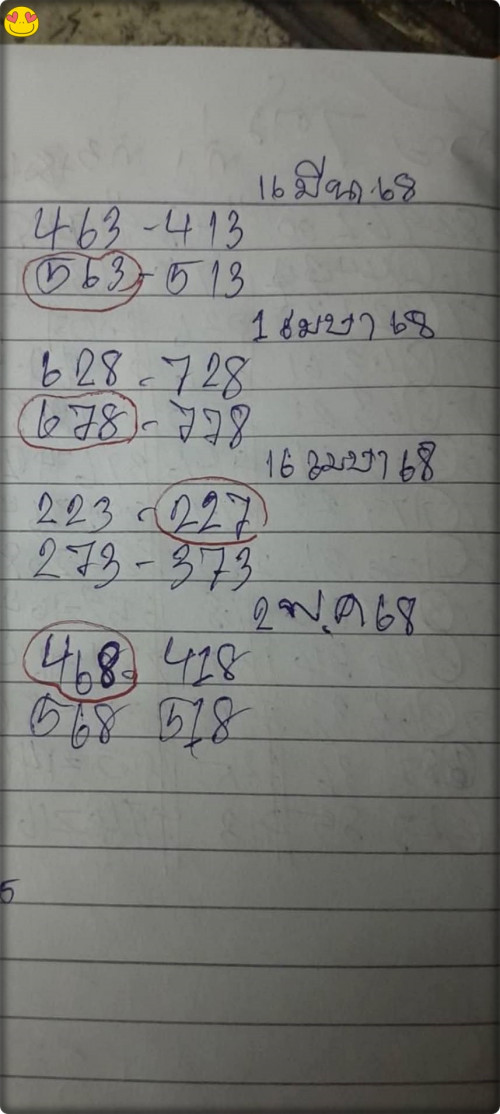 16 มีนา 68
463 - 413
563 - 513
1 เมษา 68
628 - 728
678 - 778
16 เมษา 68
223 - 227
273 - 373
2 พ.ค 68
468 - 418
568 518
5